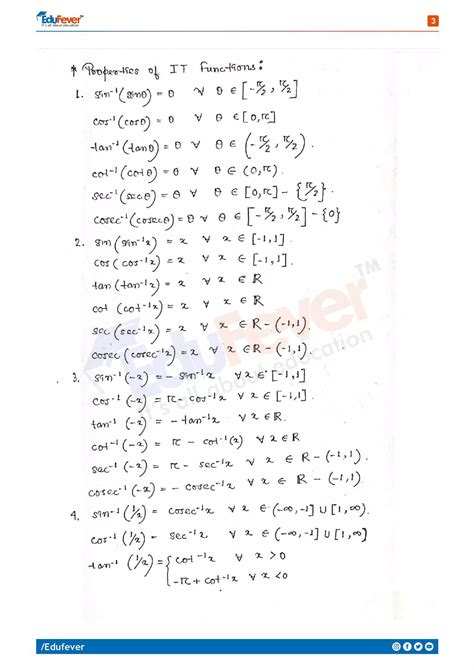 EduFever
It's all about education
3
* Properties of IT functions:
1. sin⁻¹(sinθ) = θ ∀ θ ∈ [-π/2, π/2]
cos⁻¹(cosθ) = θ ∀ θ ∈ [0,π]
tan⁻¹(tanθ) = θ ∀ θ ∈ (-π/2, π/2)
cot⁻¹(cotθ) = θ ∀ θ ∈ (0,π).
sec⁻¹(secθ) = θ ∀ θ ∈ [0,π] - {π/2}
cosec⁻¹(cosecθ) = θ ∀ θ ∈ [-π/2, π/2] - {0}
2. sin(sin⁻¹x) = x ∀ x ∈ [-1,1]
cos(cos⁻¹x) = x ∀ x ∈ [-1,1].
tan(tan⁻¹x) = x ∀ x ∈ R
cot(cot⁻¹x) = x ∀ x ∈ R
sec(sec⁻¹x) = x ∀ x ∈ R - (-1,1).
cosec(cosec⁻¹x) = x ∀ x ∈ R - (-1,1).
3. sin⁻¹(-x) = - sin⁻¹x ∀ x ∈ [-1,1]
cos⁻¹(-x) = π - cos⁻¹x ∀ x ∈ [-1,1]
tan⁻¹(-x) = - tan⁻¹x ∀ x ∈ R.
cot⁻¹(-x) = π - cot⁻¹(x) ∀ x ∈ R
sec⁻¹(-x) = π - sec⁻¹x ∀ x ∈ R - (-1,1)
cosec⁻¹(-x) = - cosec⁻¹x ∀ x ∈ R - (-1,1).
4. sin⁻¹(1/x) = cosec⁻¹x ∀ x ∈ (-∞,-1] ∪ [1,∞).
cos⁻¹(1/x) = sec⁻¹x ∀ x ∈ (-∞,-1] ∪ [1,∞)
tan⁻¹(1/x) = { cot⁻¹x ∀ x > 0
-π + cot⁻¹x ∀ x < 0
EduFever™
It's all about education
/Edufever